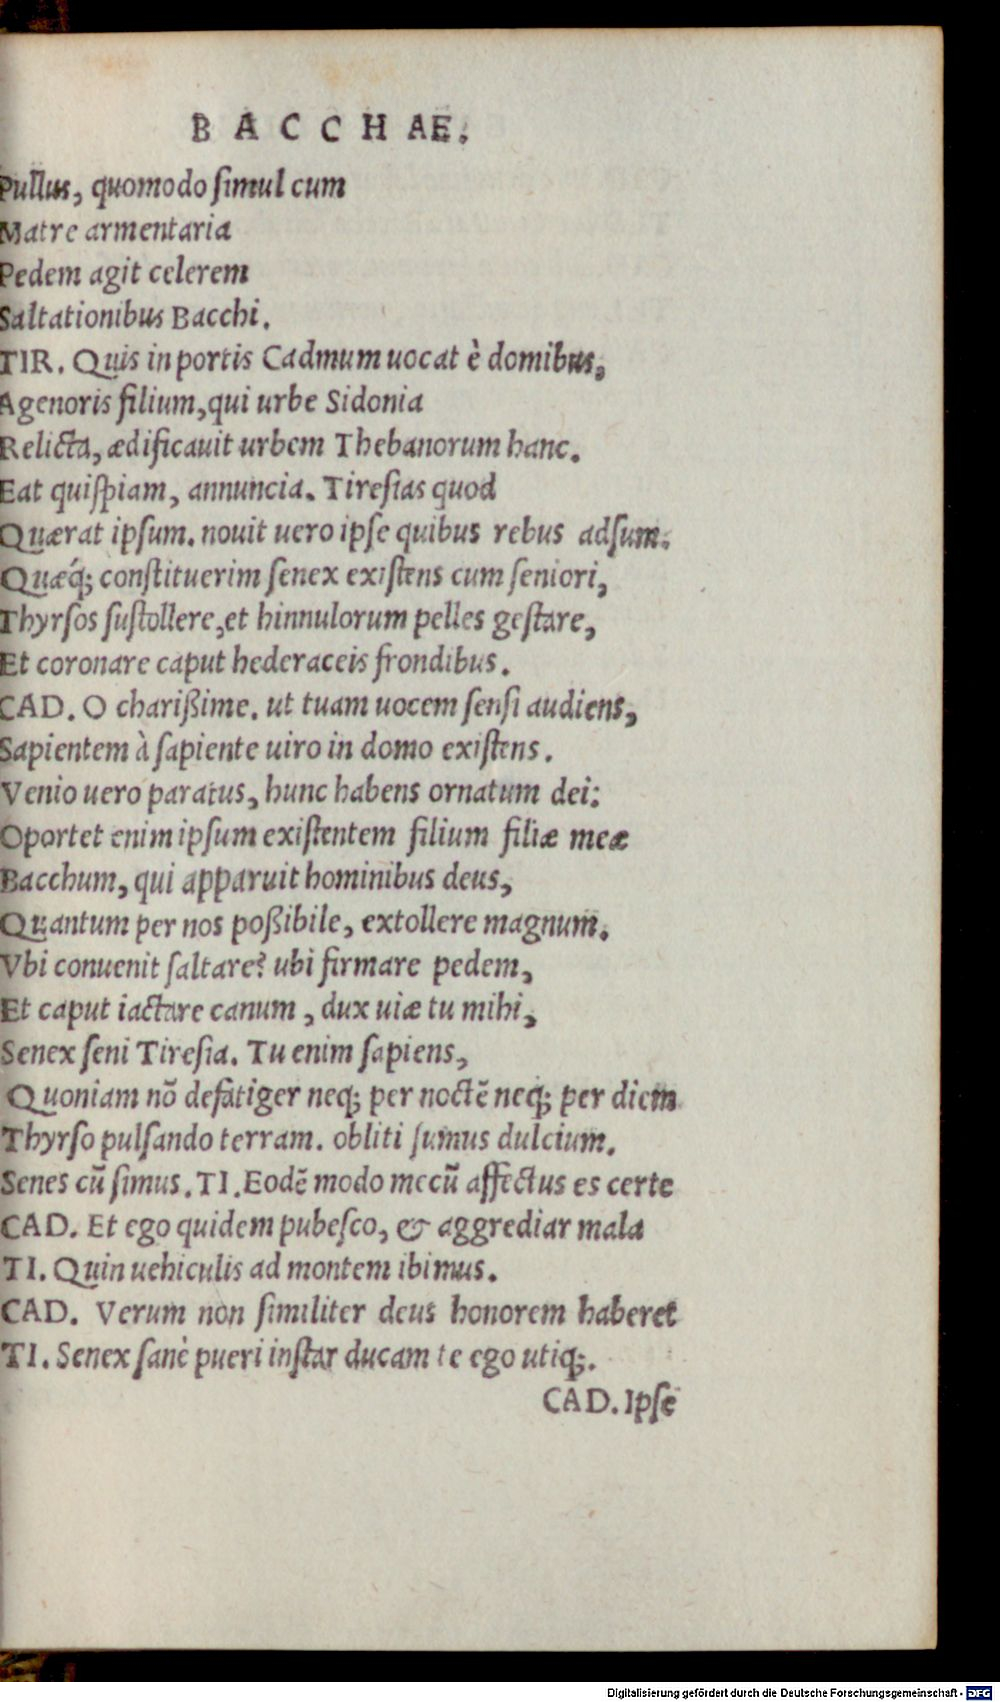 BACCHAE.
Pullus, quomodo ſimul cum
Matre armentaria
Pedem agit celerem
Saltationibus Bacchi.
TIR. Quis in portis Cadmum uocat è domibus,
Agenoris filium, qui urbe Sidonia
Relicta, ædificauit urbem Thebanorum hanc.
Eat quiſpiam, annuncia. Tireſias quod
Quærat ipſum. nouit uero ipſe quibus rebus adſum.
Quæq́; conſtituerim ſenex exiſtens cum ſeniori,
Thyrſos ſuſtollere, et hinnulorum pelles geſtare,
Et coronare caput hederaceis frondibus.
CAD. O chariſsime. ut tuam uocem ſenſi audiens,
Sapientem à ſapiente uiro in domo exiſtens.
Venio uero paratus, hunc habens ornatum dei:
Oportet enim ipſum exiſtentem filium filiæ meæ
Bacchum, qui apparuit hominibus deus,
Quantum per nos poſsibile, extollere magnum.
Vbi conuenit ſaltare? ubi firmare pedem,
Et caput iactare canum, dux uiæ tu mihi,
Senex ſeni Tireſia. Tu enim ſapiens,
Quoniam nō defatiger neq; per noctē neq; per diem
Thyrſo pulſando terram. obliti ſumus dulcium.
Senes cū ſimus. TI. Eodē modo mecū affectus es certe
CAD. Et ego quidem pubeſco, & aggrediar mala
TI. Quin uehiculis ad montem ibimus.
CAD. Verum non ſimiliter deus honorem haberet
TI. Senex ſanè pueri inſtar ducam te ego utiq;.
CAD. Ipſe
Digitalisierung gefördert durch die Deutsche Forschungsgemeinschaft - DFG